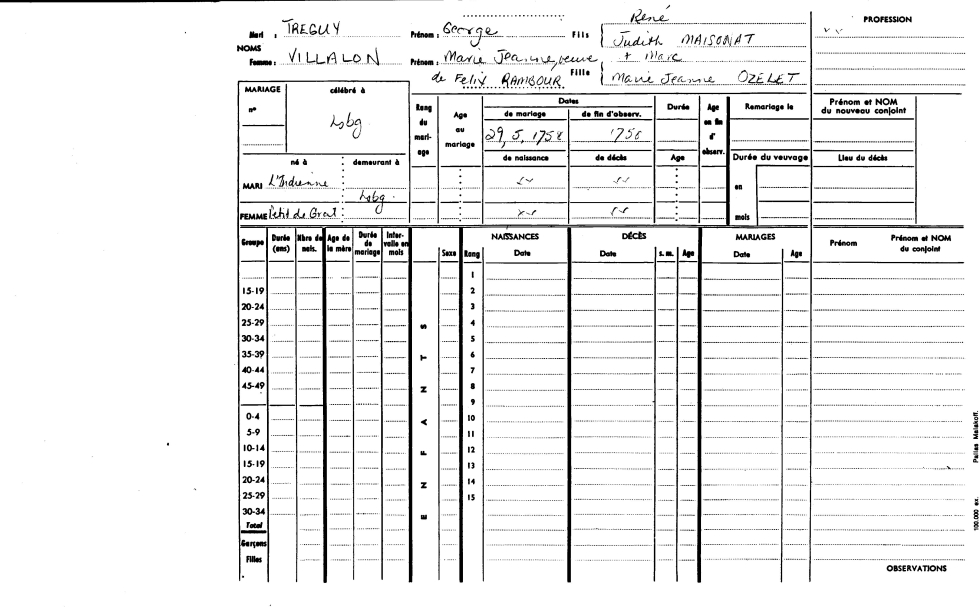 René
PROFESSION
Mari : TREGUY Prénom : George Fils Judith MAISONAT
NOMS
Femme : VILLALON Prénom : Marie Jeanne, veuve + Marc
de Felix RAMBOUR Fille Marie Jeanne OZELET
MARIAGE célébré à
n° Lsbg
Rang du mari-age
Age au mariage
Dates
de mariage de fin d'observ.
29, 5, 1758 1758
de naissance de décès
Durée
Age
Age en fin d' observ.
Remariage le
Durée du veuvage
en
mois
Prénom et NOM
du nouveau conjoint
Lieu du décès
né à demeurant à
MARI L'Indienne
Lsbg.
FEMME Petit de Grat
Groupe Durée (ans) Nbre de nais. Age de la mère Durée de mariage Inter-valle en mois
NAISSANCES DÉCÈS MARIAGES
Sexe Rang Date Date s. m. Age Date Age Prénom Prénom et NOM du conjoint
1
15-19 2
20-24 3
25-29 4
30-34 5
35-39 6
40-44 7
45-49 8
9
0-4 10
5-9 11
10-14 12
15-19 13
20-24 14
25-29 15
30-34
Total
Garçons
Filles
E N F A N T S
OBSERVATIONS
100.000 ex. Pallas Malakoff.